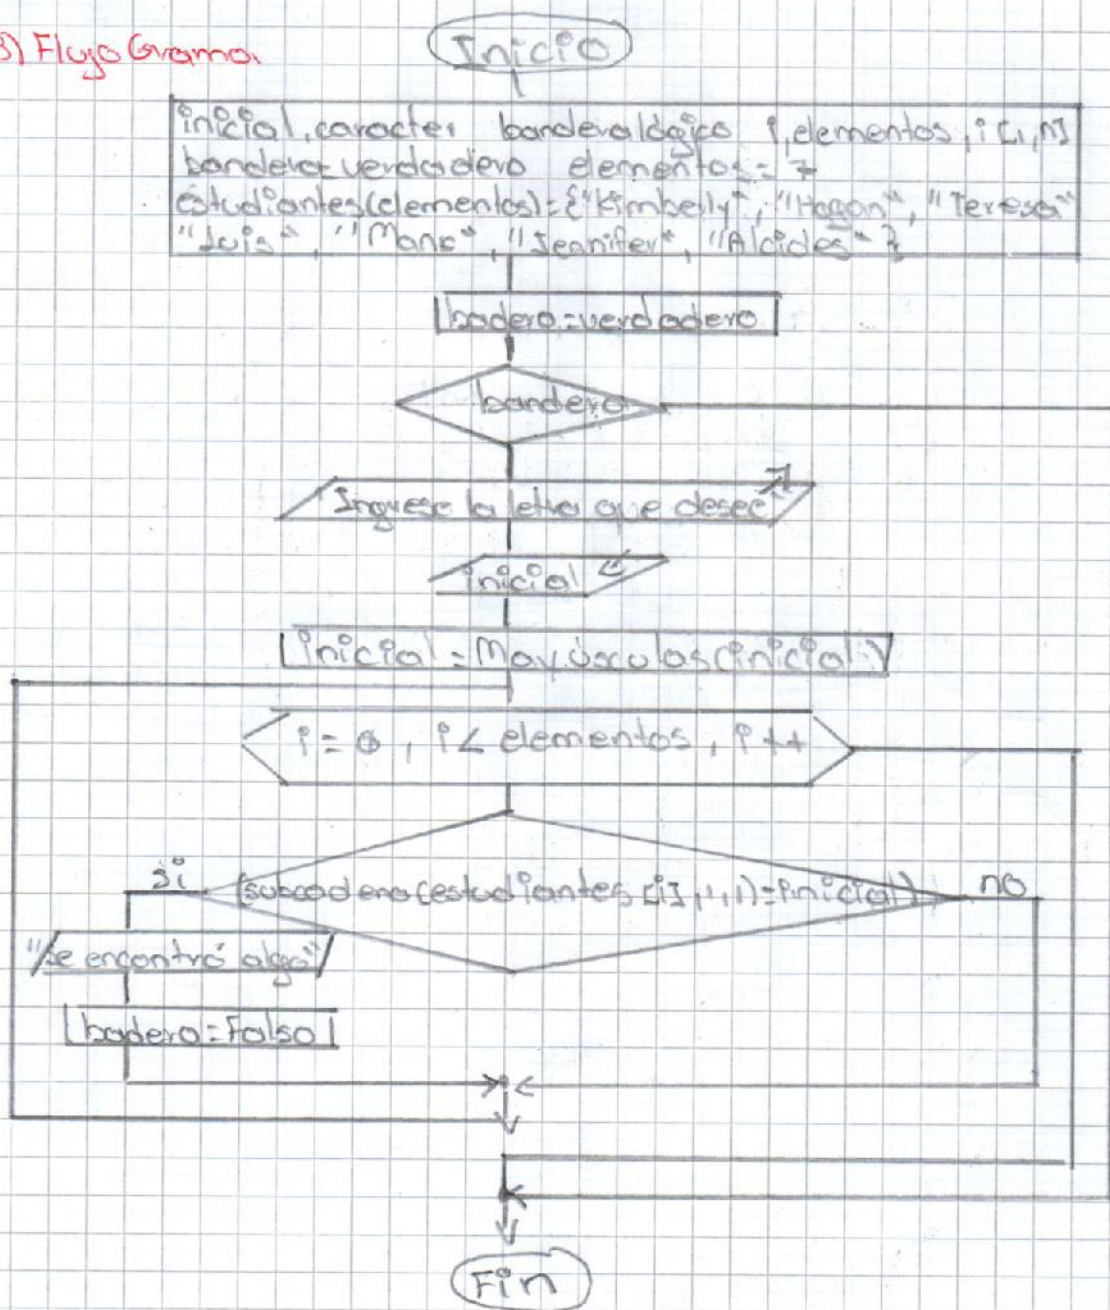 3) FlujoGrama
Inicio
inicial, caracter bandera lógico i, elementos, i [1, n]
bandera=verdadero elementos = 7
estudiantes(elementos)={"Kimberly", "Hogan", "Teresa"
"Luis", "Marc", "Jennifer", "Alcides"}
badera=verdadero
bandera
Ingrese la letra que desee"
inicial
inicial=Mayúsculas(inicial)
i=0, i< elementos, i++
si
(subcadena(estudiantes[i],1,1)=inicial)
no
"se encontró algo"
badera=Falso
Fin